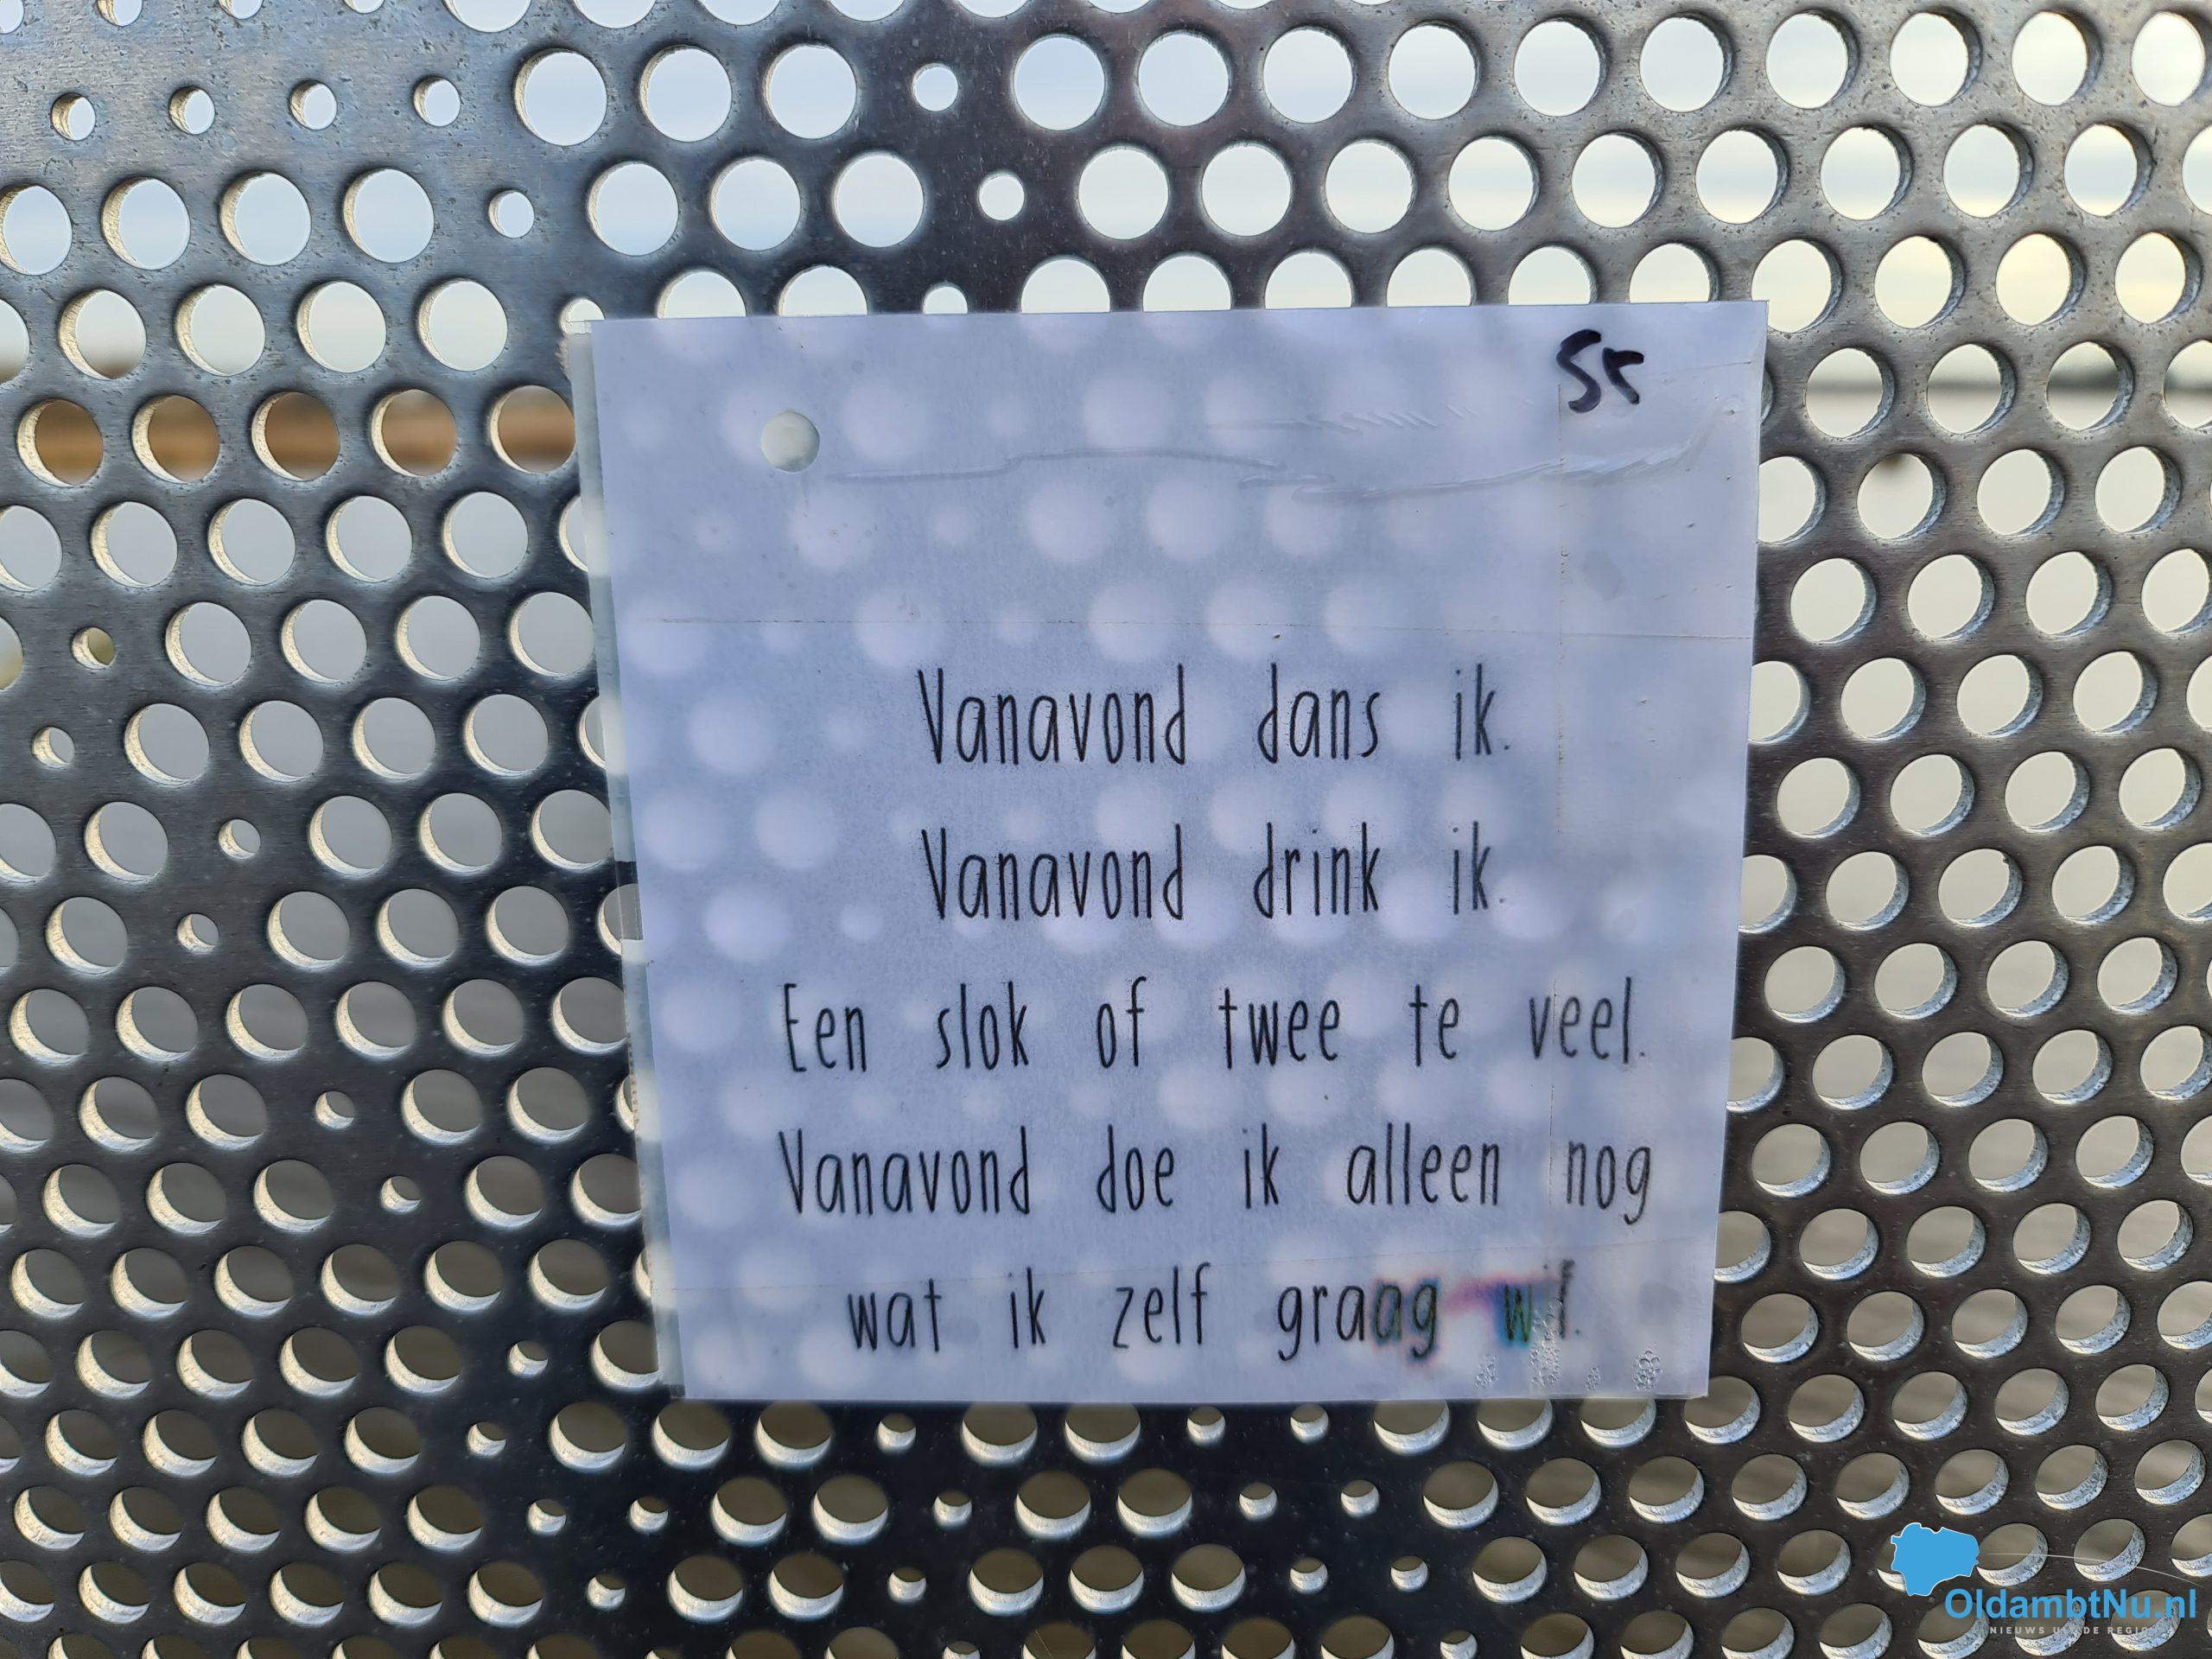 55
Vanavond dans ik.
Vanavond drink ik.
Een slok of twee te veel.
Vanavond doe ik alleen nog
wat ik zelf graag wil.
OldambtNu.nl
NIEUWS UIT DE REGIO